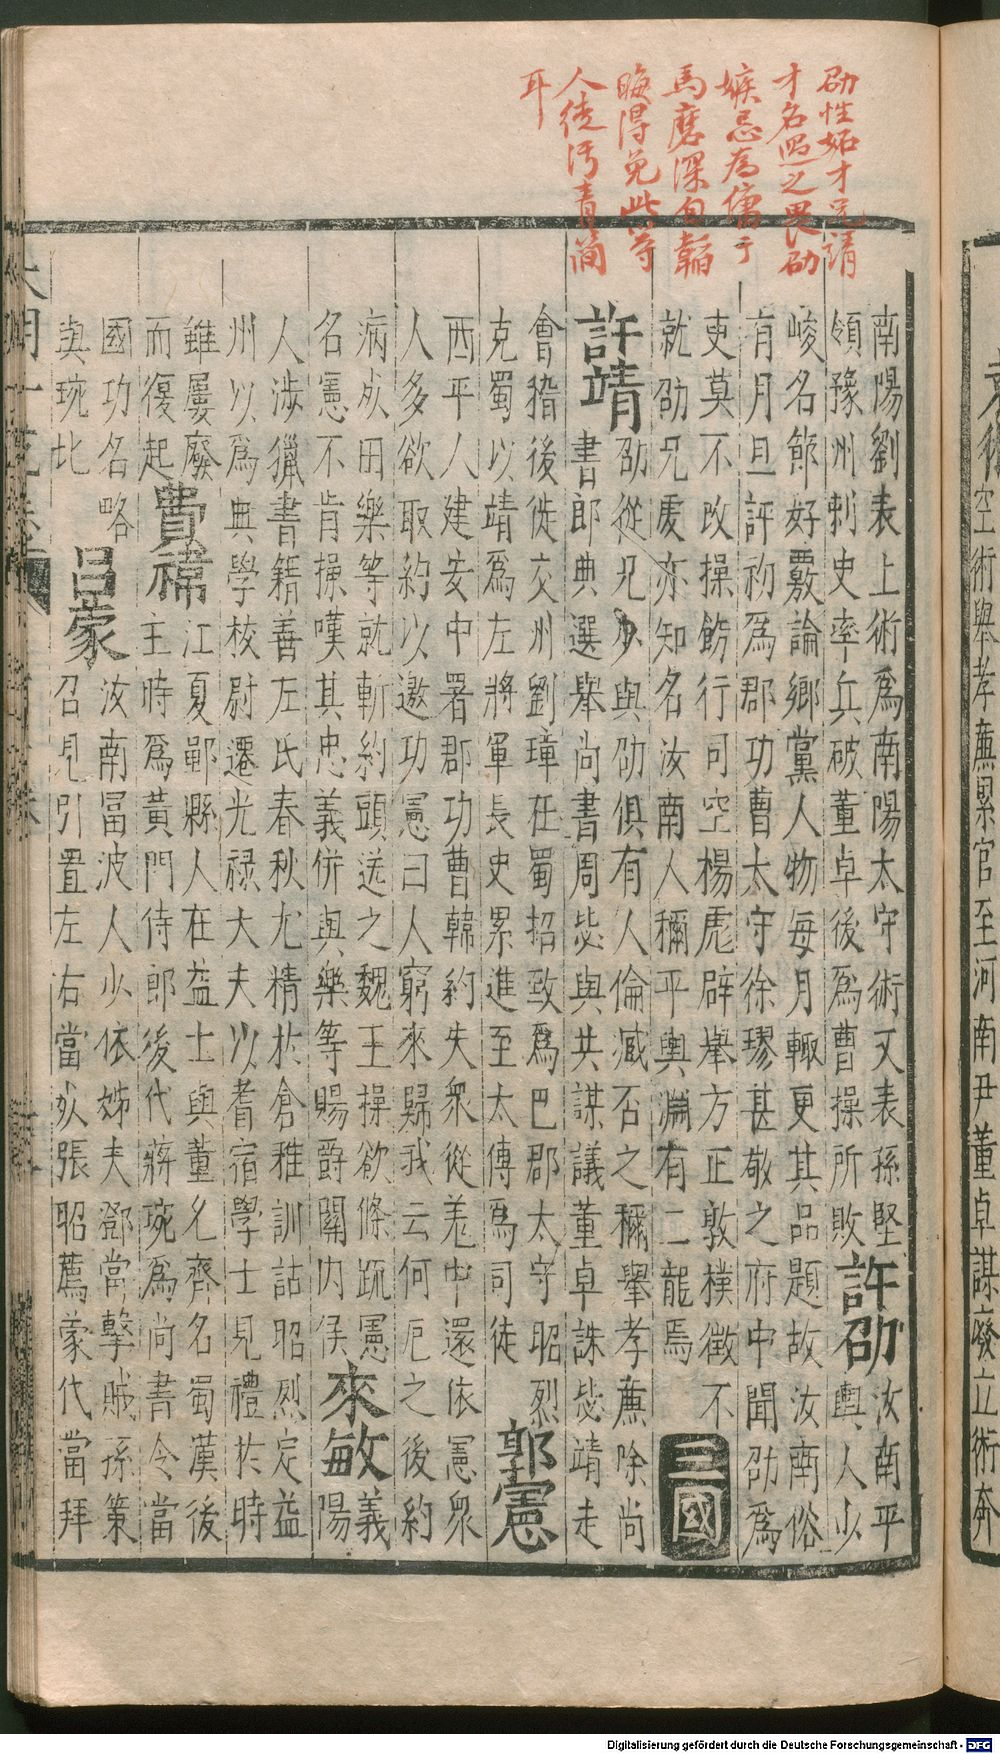 劭性妬才兄靖
才名過之畏劭
嫉忌為傭于
馬磨深自韜
晦得免此等
人徒污青簡
耳
南陽劉表上術爲南陽太守術又表孫堅
領豫州刺史率兵破董卓後爲曹操所敗許劭汝南平輿人少
峻名節好覈論鄉黨人物每月輙更其品題故汝南俗
有月旦評初爲郡功曹太守徐璆甚敬之府中聞劭爲
吏莫不改操飭行司空楊彪辟舉方正敦樸徵不
就劭兄虔亦知名汝南人稱平輿淵有二龍焉三國
許靖劭從兄少與劭俱有人倫臧否之稱舉孝亷除尚
書郎典選舉尚書周毖與共謀議董卓誅毖靖走
會稽後徙交州劉璋在蜀招致爲巴郡太守昭烈
克蜀以靖爲左將軍長史累進至太傅爲司徒郭憲
西平人建安中署郡功曹韓約失衆從羌中還依憲衆
人多欲取約以邀功憲曰人窮來歸我云何厄之後約
病死田樂等就斬約頭送之魏王操欲條疏憲
名憲不肯操嘆其忠義併與樂等賜爵關内侯來敏義陽
人涉獵書籍善左氏春秋尤精於倉雅訓詁昭烈定益
州以爲典學校尉遷光禄大夫以耆宿學士見禮於時
雖屢廢而復起費禕江夏鄳縣人在益土與董允齊名蜀漢後
主時爲黃門侍郎後代蔣琬爲尚書令當
國功名略與琬比呂蒙汝南冨波人少依姊夫鄧當擊賊孫策
召見引置左右當死張昭薦蒙代當拜
空術舉孝亷累官至河南尹董卓謀廢立術奔
Digitalisierung gefördert durch die Deutsche Forschungsgemeinschaft - DFG